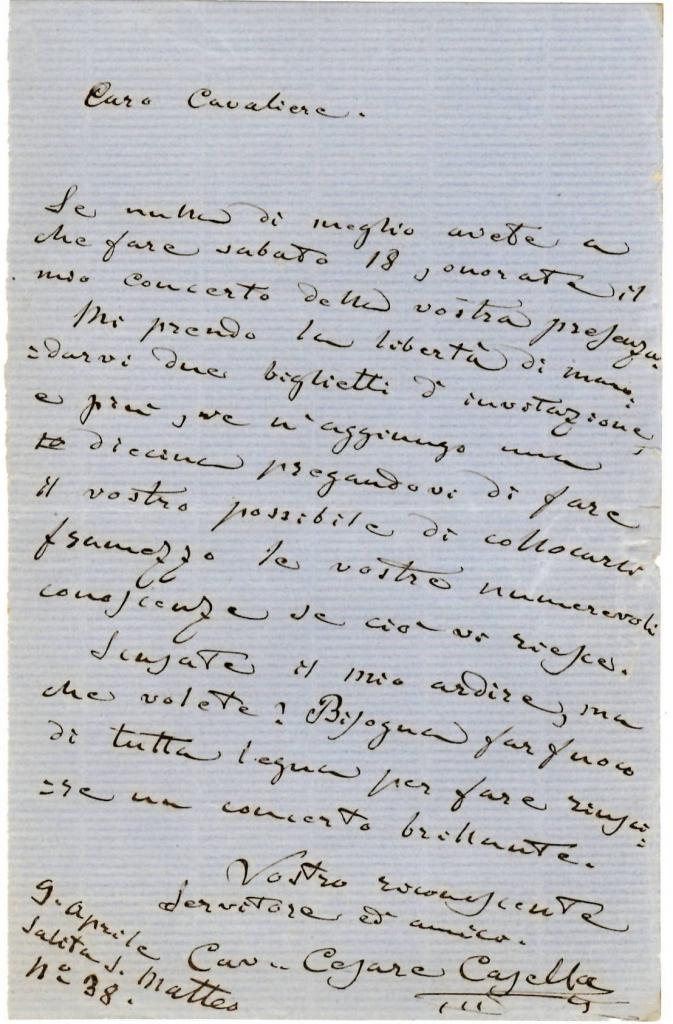 Caro Cavaliere.
Se nulla di meglio avete a
che fare sabato 18, onorate il
mio concerto della vostra presenza.
Mi prendo la libertà di man=
=darvi due biglietti d'invitazione,
e più, ve n'aggiungo una
diecina pregandovi di fare
il vostro possibile di collocarli
framezzo le vostre numerevoli
conoscenze se ciò vi riesce.
Scusate il mio ardire, ma
che volete? Bisogna far fuoco
di tutta legna per fare riusci=
=re un concerto brillante.
Vostro riconoscente
Servitore ed amico.
Cav.. Cesare Casella
9. Aprile
Salita S. Matteo
Nº 38.